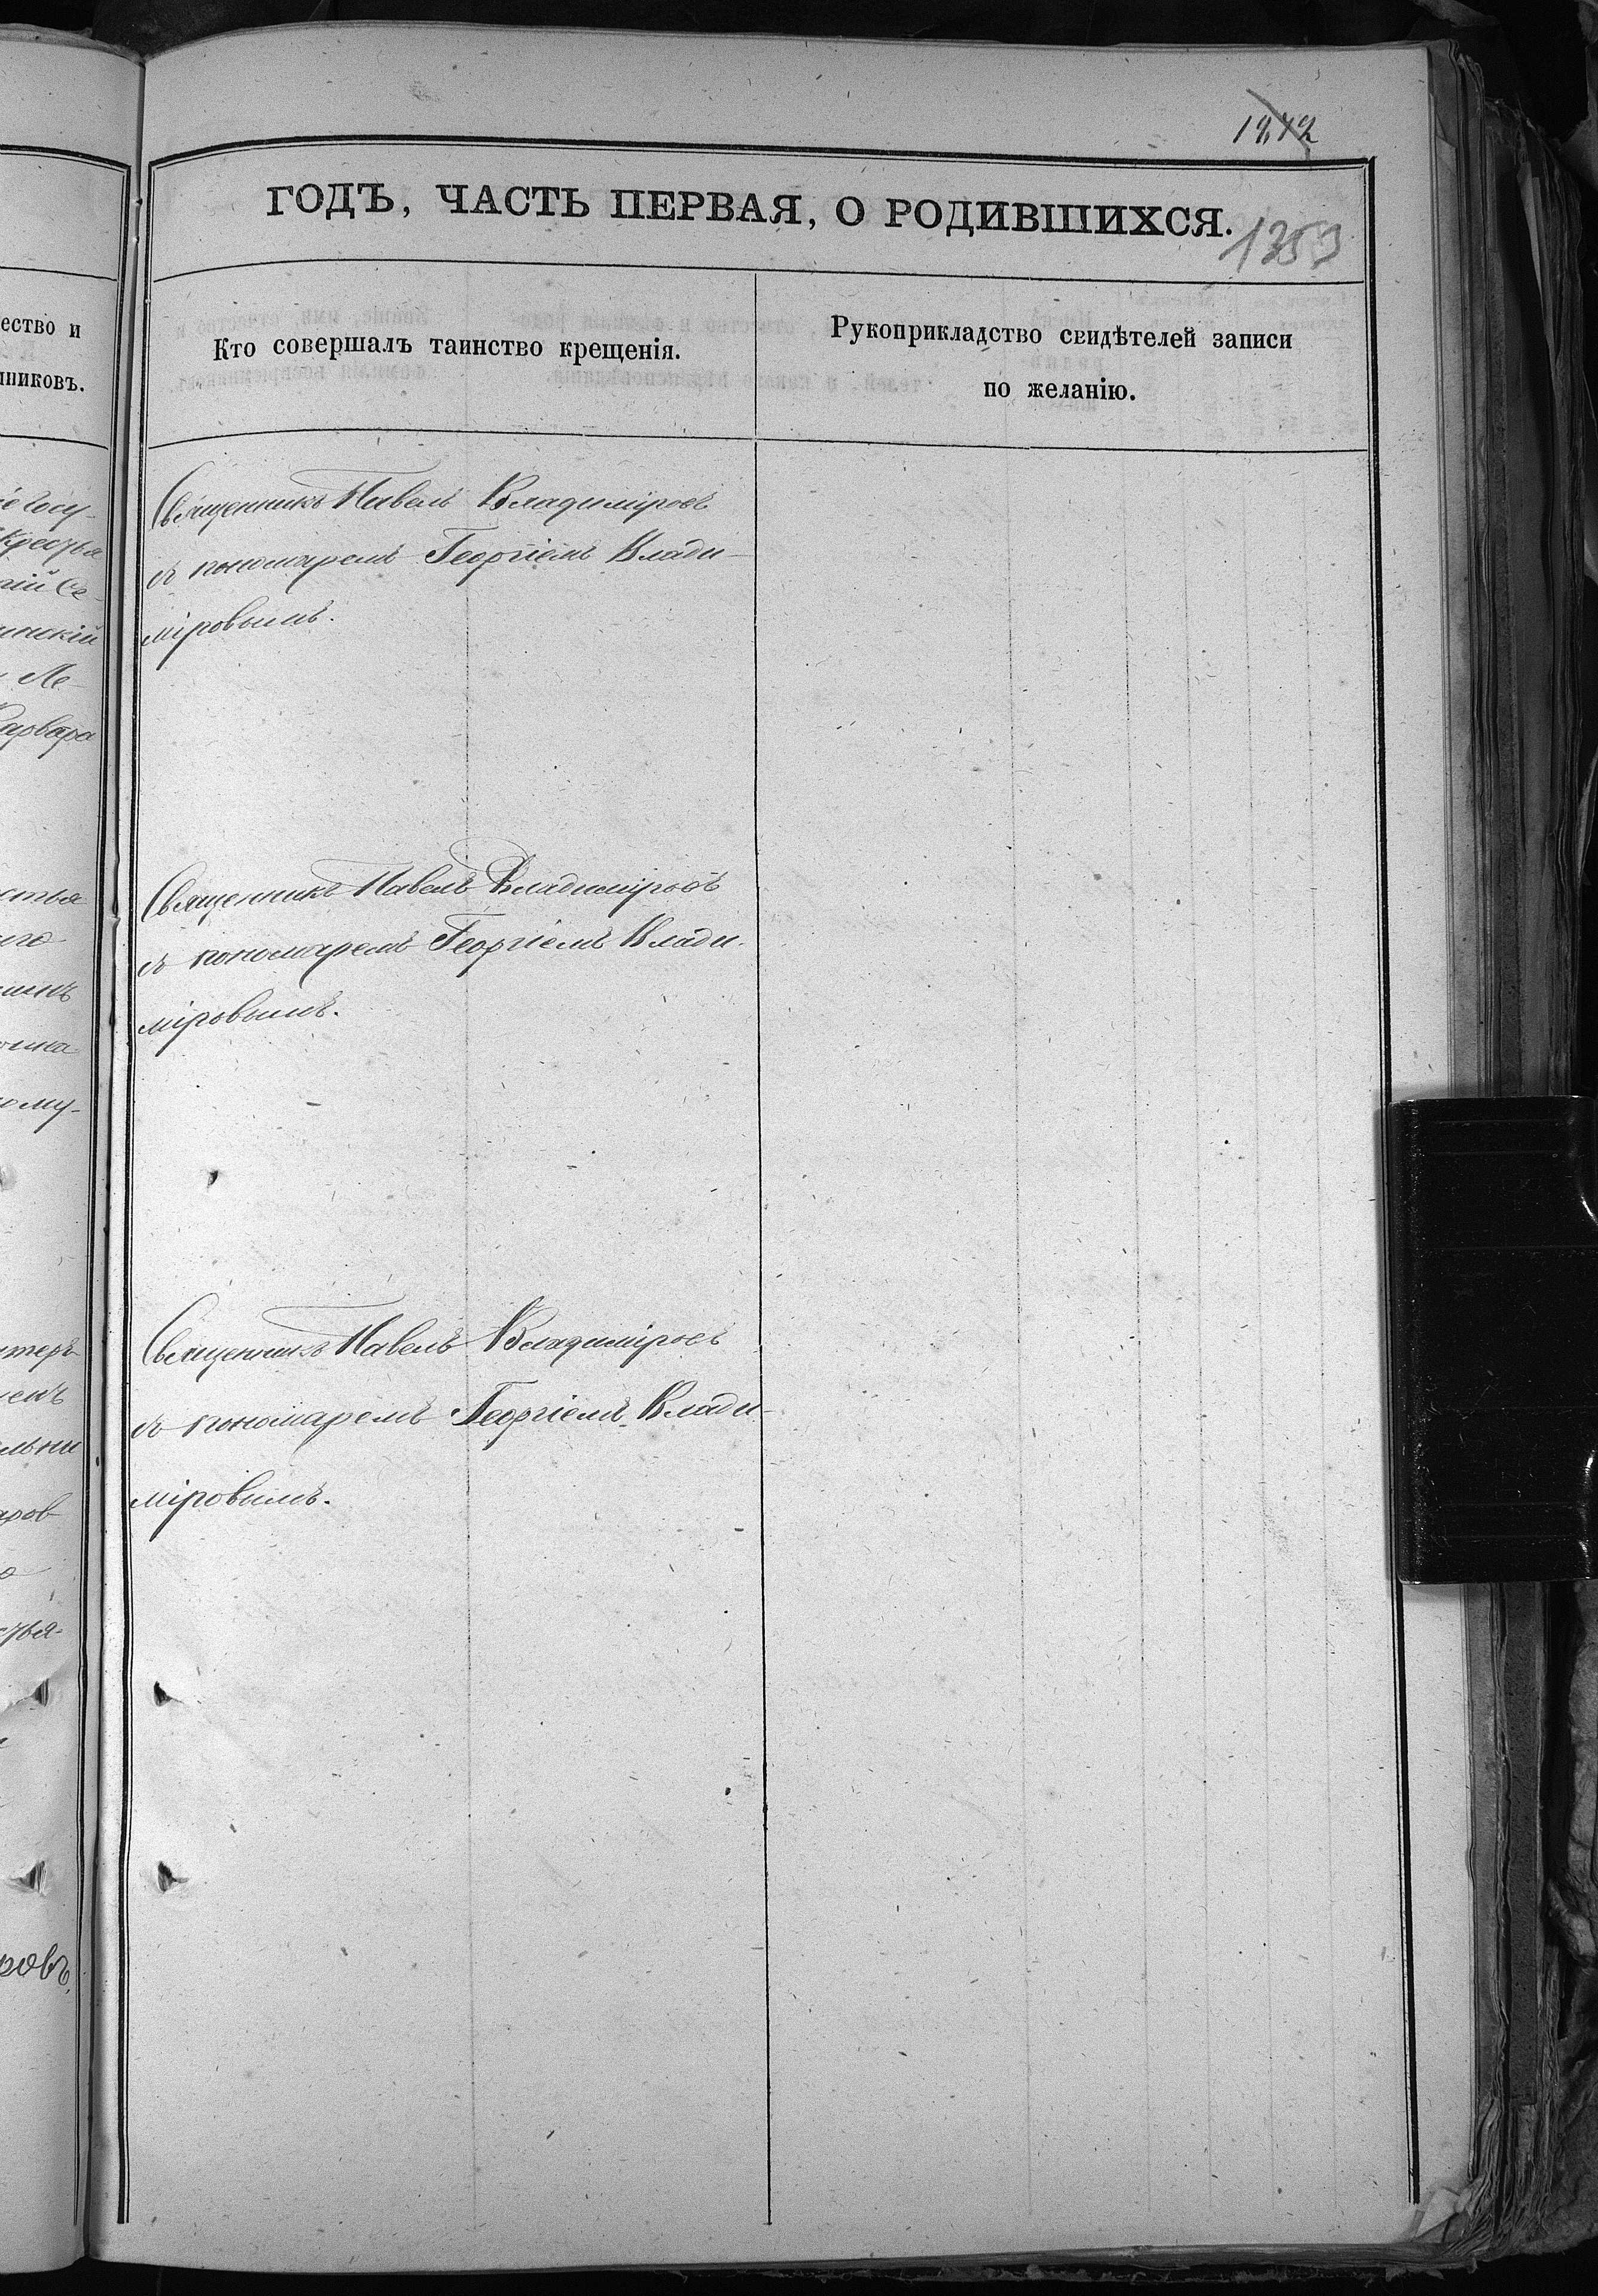 ГОДЪ, ЧАСТЬ ПЕРВАЯ, О РОДИВШИХСЯ.
1359
ество и
нниковъ.
Кто совершалъ таинство крещенія.
Рукоприкладство свидѣтелей записи
по желанію.
Священникъ Павелъ Владиміровъ
съ пономаремъ Георгіемъ Влади-
міровымъ.
Священникъ Павелъ Владиміровъ
съ пономаремъ Георгіемъ Влади-
міровымъ.
Священникъ Павелъ Владиміровъ
съ пономаремъ Георгіемъ Влади-
міровымъ.
ровъ.